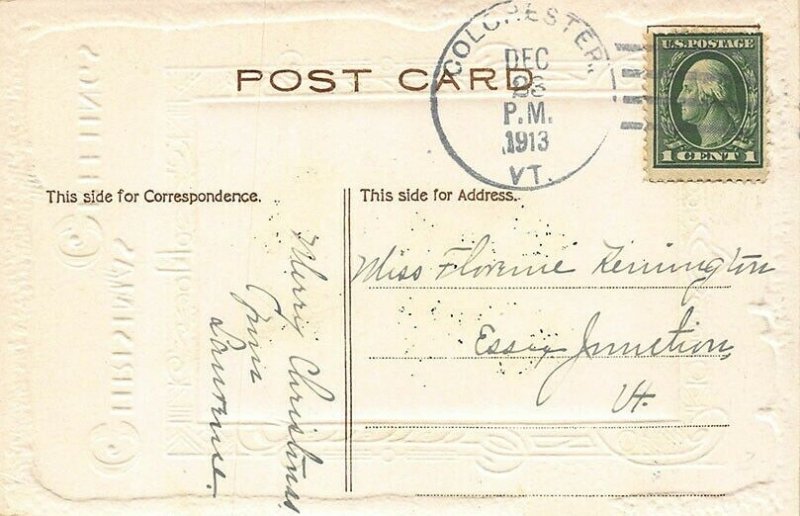 POST CARD
COLCHESTER
DEC
P.M.
1913
VT.
U.S. POSTAGE
1 CENT 1
This side for Correspondence.
This side for Address.
Merry Christmas
From
Lawrence.
Miss Florence
Essex Junction,
Vt.
CHRISTMAS